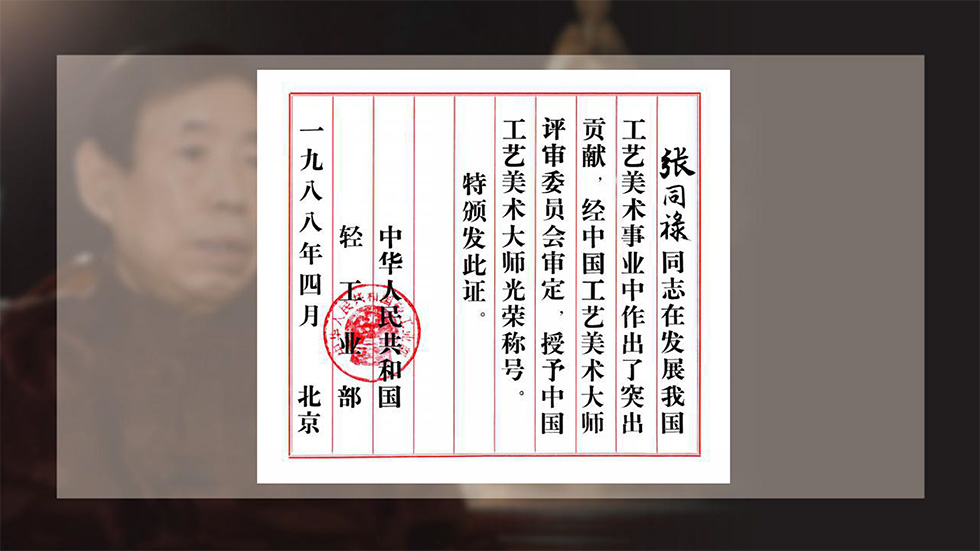 张同禄同志在发展我国
工艺美术事业中作出了突出
贡献，经中国工艺美术大师
评审委员会审定，授予中国
工艺美术大师光荣称号。
特颁发此证。
中华人民共和国
轻工业部
一九八八年四月 北京